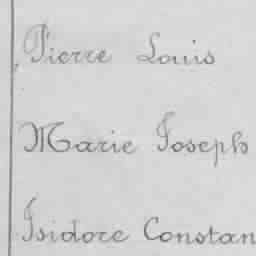 Pierre Louis
Marie Joseph
Isidore Constan